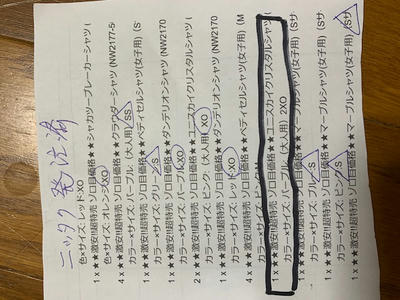 ニッタク 発注済
色×サイズ: レッド:XO
1 x ★★激安!!超特売 ゾロ目価格★★シャカツーブレーカーシャツ (
色×サイズ: オレンジ:XO
4 x ★★激安!!超特売 ゾロ目価格★★クラウダーシャツ (NW2177-5
カラー×サイズ: パープル:(大人用) SS
1 x ★★激安!!超特売 ゾロ目価格★★ペティセルシャツ(女子用) (S
カラー×サイズ: グリーン:S
1 x ★★激安!!超特売 ゾロ目価格★★ダンデリオンシャツ (NW2170
カラー×サイズ: パープル:XO
2 x ★★激安!!超特売 ゾロ目価格★★ユースカイクリスタルシャツ (
カラー×サイズ: ピンク:(大人用) XO
1 x ★★激安!!超特売 ゾロ目価格★★ダンデリオンシャツ (NW2170
カラー×サイズ: レッド:XO
4 x ★★激安!!超特売 ゾロ目価格★★ペティセルシャツ(女子用) (M
カラー×サイズ: ピンク:M
1 x ★★激安!!超特売 ゾロ目価格★★ユースカイクリスタルシャツ (
カラー×サイズ: パープル:(大人用) 2XO
1 x ★★激安!!超特売 ゾロ目価格★★マーブルシャツ(女子用) (Sサ
カラー×サイズ: ブルー:S
1 x ★★激安!!超特売 ゾロ目価格★★マーブルシャツ(女子用) (Sサ
カラー×サイズ: ピンク:S
1 x ★★激安!!超特売 ゾロ目価格★★マーブルシャツ(女子用) (Sサ